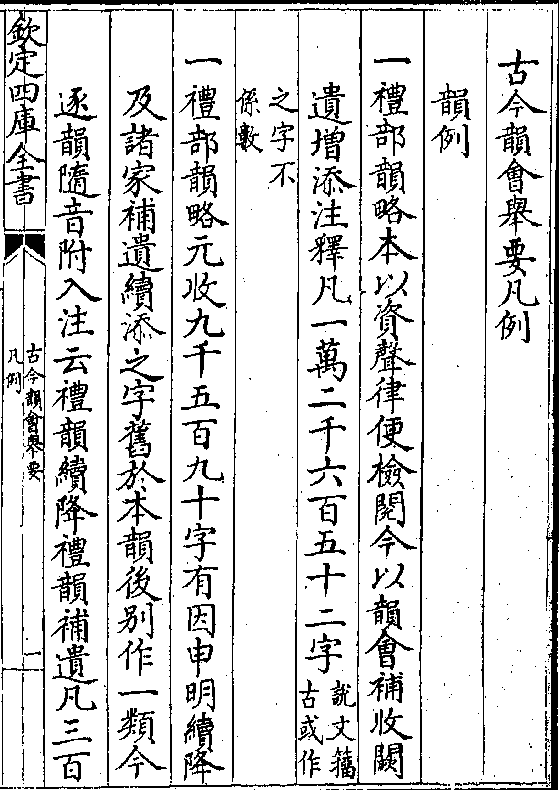 古今韻會舉要凡例
韻例
一禮部韻略本以資聲律便檢閱今以韻會補收闕
遺增添注釋凡一萬二千六百五十二字說文籀
古或作
之字不
係數
一禮部韻略元收九千五百九十字有因申明續降
及諸家補遺續添之字舊於本韻後别作一類今
逐韻隨音附入注云禮韻續降禮韻補遺凡三百
欽定四庫全書
古今韻會舉要
凡例
一